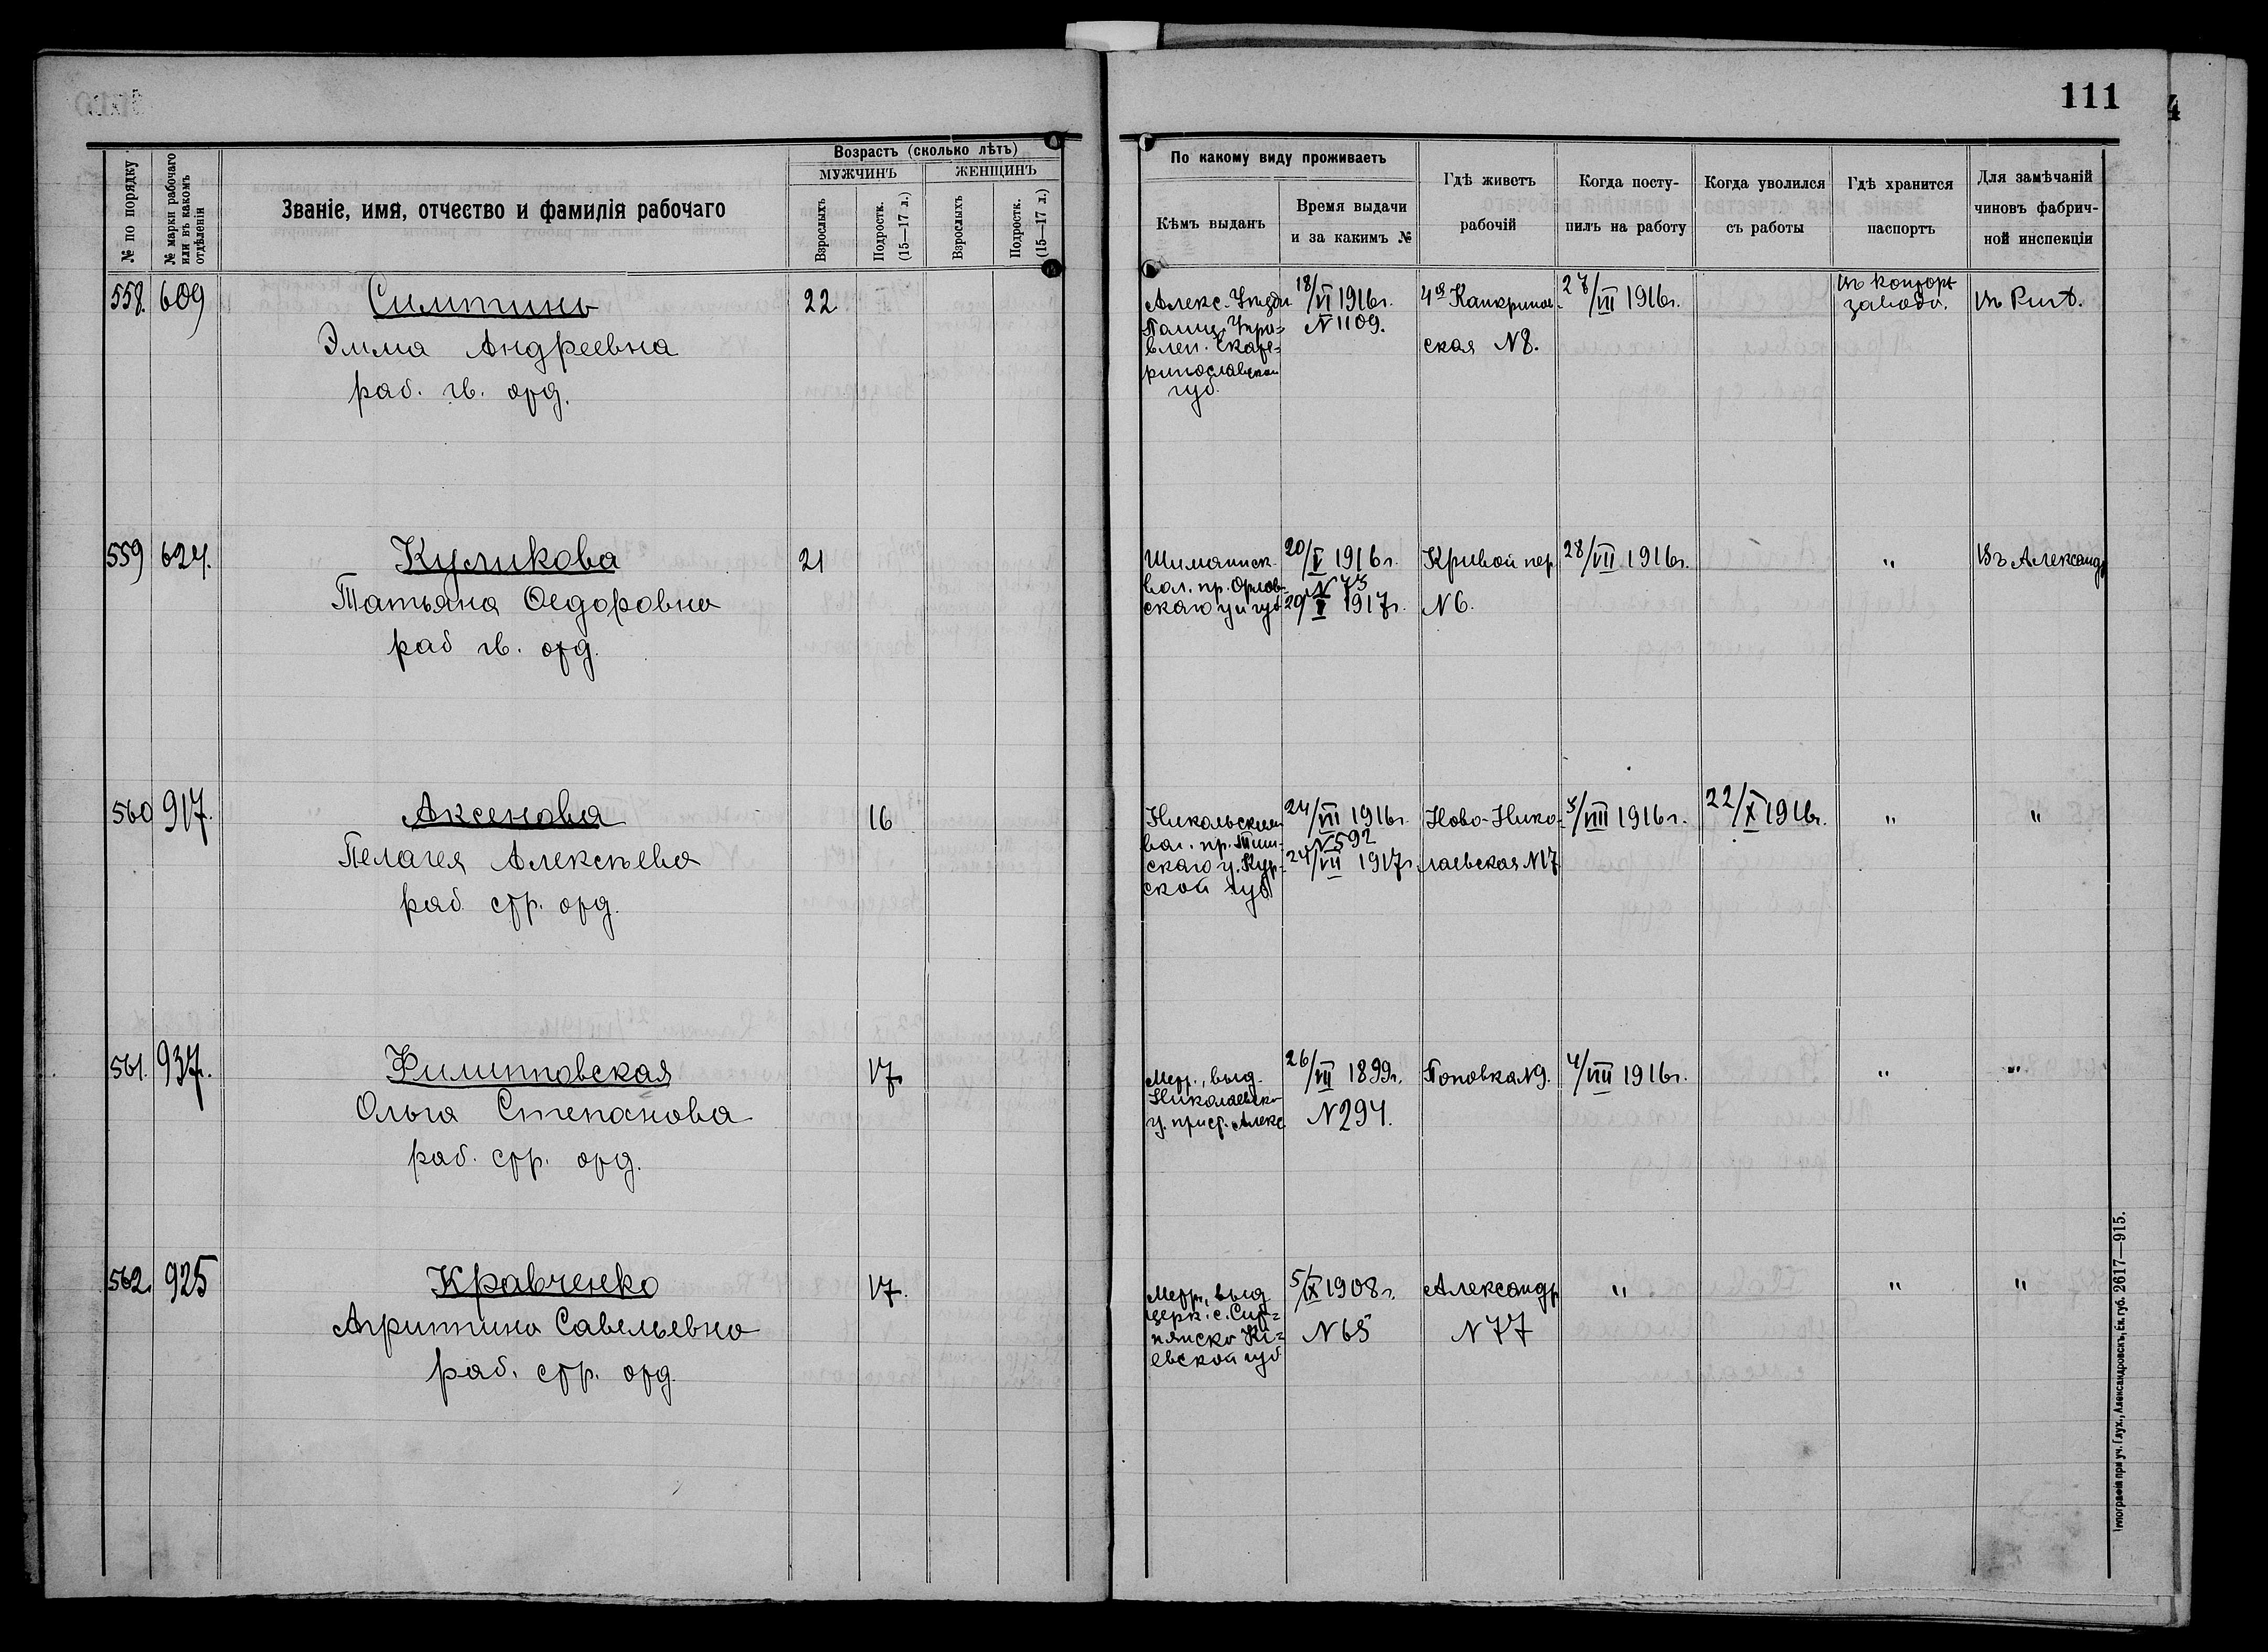 111
№ по порядку
№ марки рабочаго
или въ какомъ
отдѣленіи
Званіе, имя, отчество и фамилія рабочаго
Возрастъ (сколько лѣтъ)
МУЖЧИНЪ
ЖЕНЩИНЪ
Взрослыхъ
Подростк.
(15—17 л.)
Взрослыхъ
Подростк.
(15—17 л.)
По какому виду проживаетъ
Кѣмъ выданъ
Время выдачи
и за какимъ №
Гдѣ живетъ
рабочій
Когда посту-
пилъ на работу
Когда уволился
съ работы
Гдѣ хранится
паспортъ
Для замѣчаній
чиновъ фабрич-
ной инспекціи
558. 609
Эмма Андреевна
раб. гв. отд.
22
Алекс. Уѣздн
Полиц. Упра-
влен. Екате-
ринославской
губ.
18/VI 1916г.
N 1109.
4ая Канкринов-
ская N 8.
28/VII 1916г.
въ контор
завода.
559 624.
Куликова
Татьяна Ѳедоровна
раб гв. отд.
21
вол. пр. Орлов-
скаго у и губ
20/V 1916г.
N 73
20/V 1917г.
Кривой пер
N 6.
28/VII 1916г.
"
Въ Александр
560 917.
Аксенова
Пелагея Алексѣева
раб стр. отд.
16
Никольским
вол. пр. Тим-
скаго у. Кур-
ской губ
24/VII 1916г.
N 592
24/VII 1917г
Ново-Нико-
лаевская N 17
3/VIII 1916г.
22/X 1916г.
"
"
561. 937.
Филипповская
Ольга Степанова
раб. стр. отд.
17
Метр., выд.
Николаевско
ц. прист. Алекс.
26/VII 1899г.
N 294.
Поповка N 9.
4/VIII 1916г.
"
"
562. 925
Кравченко
Агриппина Савельевна
раб. стр. отд.
17.
Метр., выд
церк. с. Сит-
нянска Кі-
евской губ
5/IX 1908г.
N 65
Александр
N 77
"
"
"
Типографія при уч. Глух., Александровскъ, Ек. губ. 2617—915.